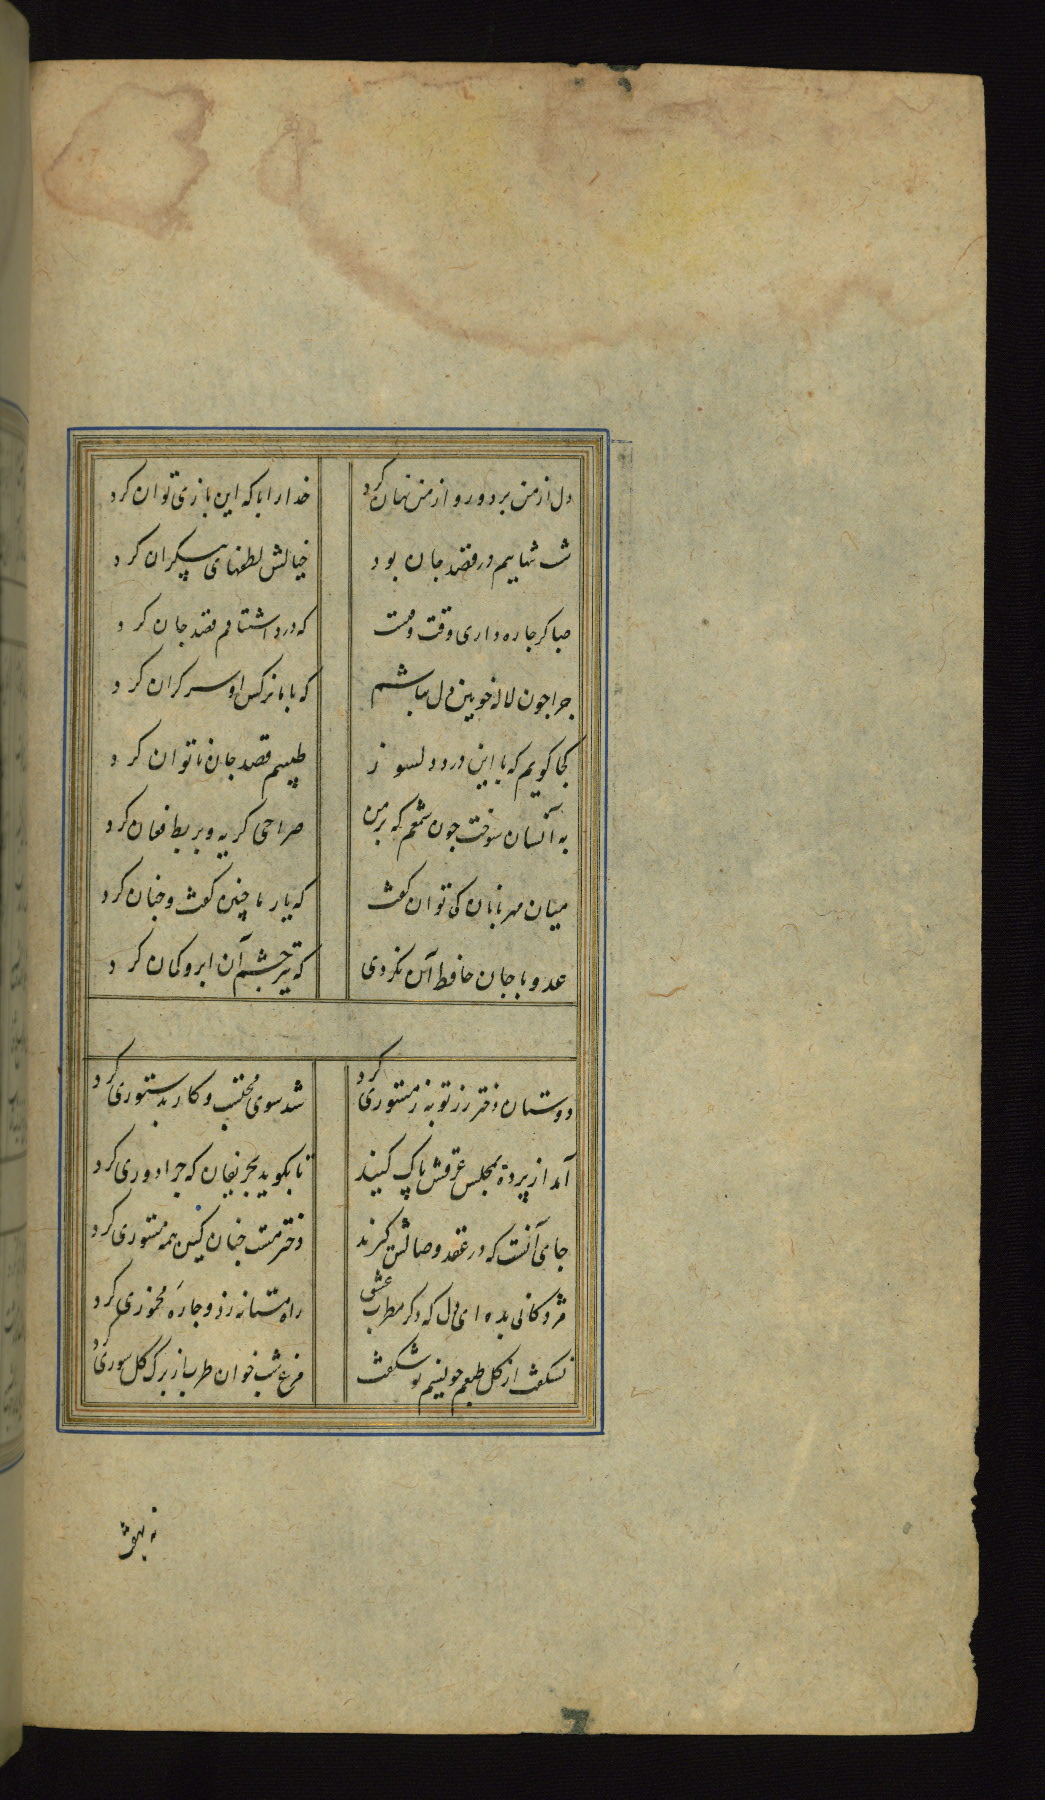 دل از من برد و رو از من نهان کرد
خدا را با که این بازی توان کرد
شب تنهاییم در قصد جان بود
خیالش لطفهای بیکران کرد
صبا کر چاره داری وقت وقتست
که درد اشتیاقم قصد جان کرد
چرا چون لاله خونین دل نباشم
که با ما نرکس او سرکران کرد
کجا کویم که با این درد دلسوز
طبیبم قصد جان ناتوان کرد
بدآنسان سوخت چون شمعم که بر من
صراحی کریه و بربط فغان کرد
میان مهربانان کی توان کفت
که یار ما چنین کفت و چنان کرد
عدو با جان حافظ آن نکردی
که تیر چشم آن ابرو کمان کرد
دوستان دختر رز توبه ز مستوری کرد
شد سوی محتسب و کار بدستوری کرد
آمد از پرده بمجلس عرقش پاک کنید
تا بکوید بحریفان که چرا دوری کرد
جای آنست که در عقد وصالش کیرند
دختر مست چنان کین همه مستوری کرد
مژدکانی بده ای دل که دکر مطرب عشق
راه مستانه زد و چاره مخموری کرد
نشکفت از کل طبعم چو نسیمش بشکفت
مرغ شب خوان طرب از برک کل سوری کرد
نه بهفت